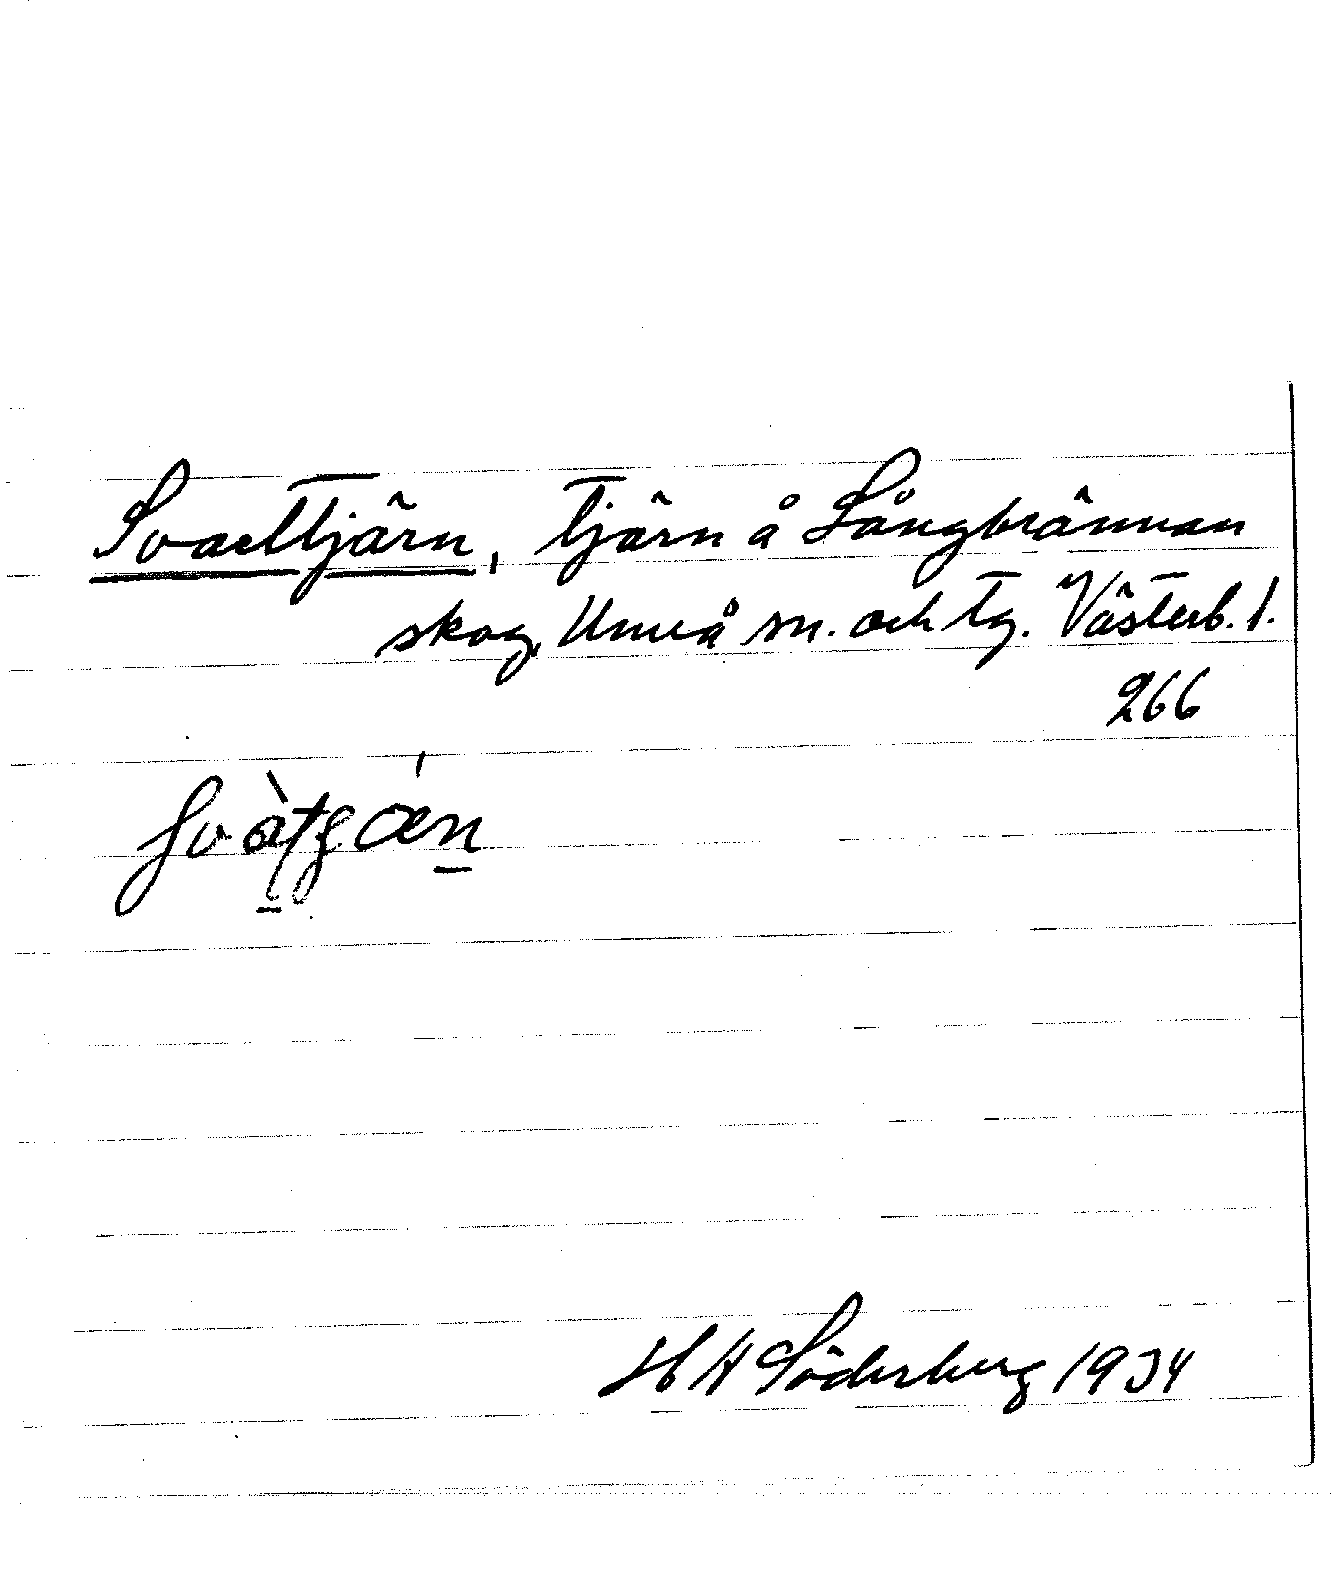 Svarttjärn, tjärn å Långbrännan
skog, Umeå sn. och tg. Västerb. l.
266
H A Söderberg 1934